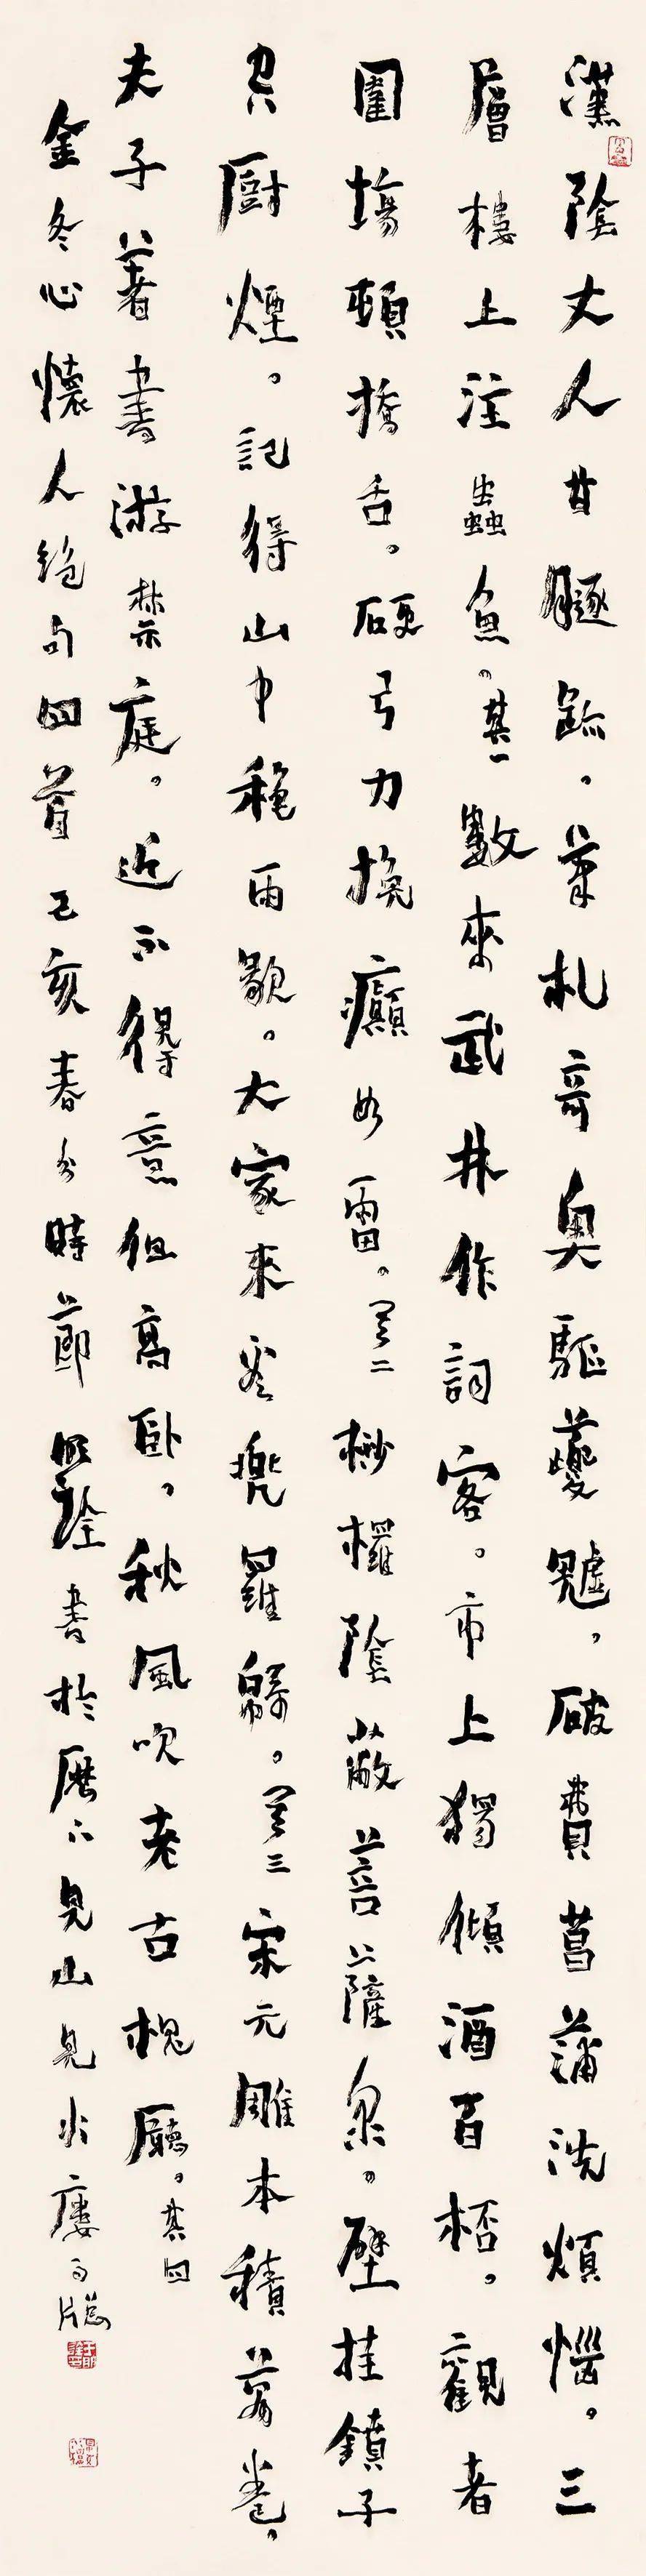 漢陰丈人甘隧蹠，筆札奇奧驅夔魖，破費菖蒲洗煩惱。三
層樓上注蟲魚。其一 數來武林作詞客。市上獨傾酒百桮。觀者
圍場頓撟舌。硬弓力挽癲如雷。其二 桫欏陰蔽菩薩泉。壁挂鎮子
穴廚煙。記得山中種雨歇。大家來岺兜羅綿。其三 宋元雕本積萬卷，
夫子著書游禁庭。近不得意但高臥，秋風吹老古槐廳。其四
金冬心懷人絕句四首 己亥春分時節 書於歷下見山見水廔